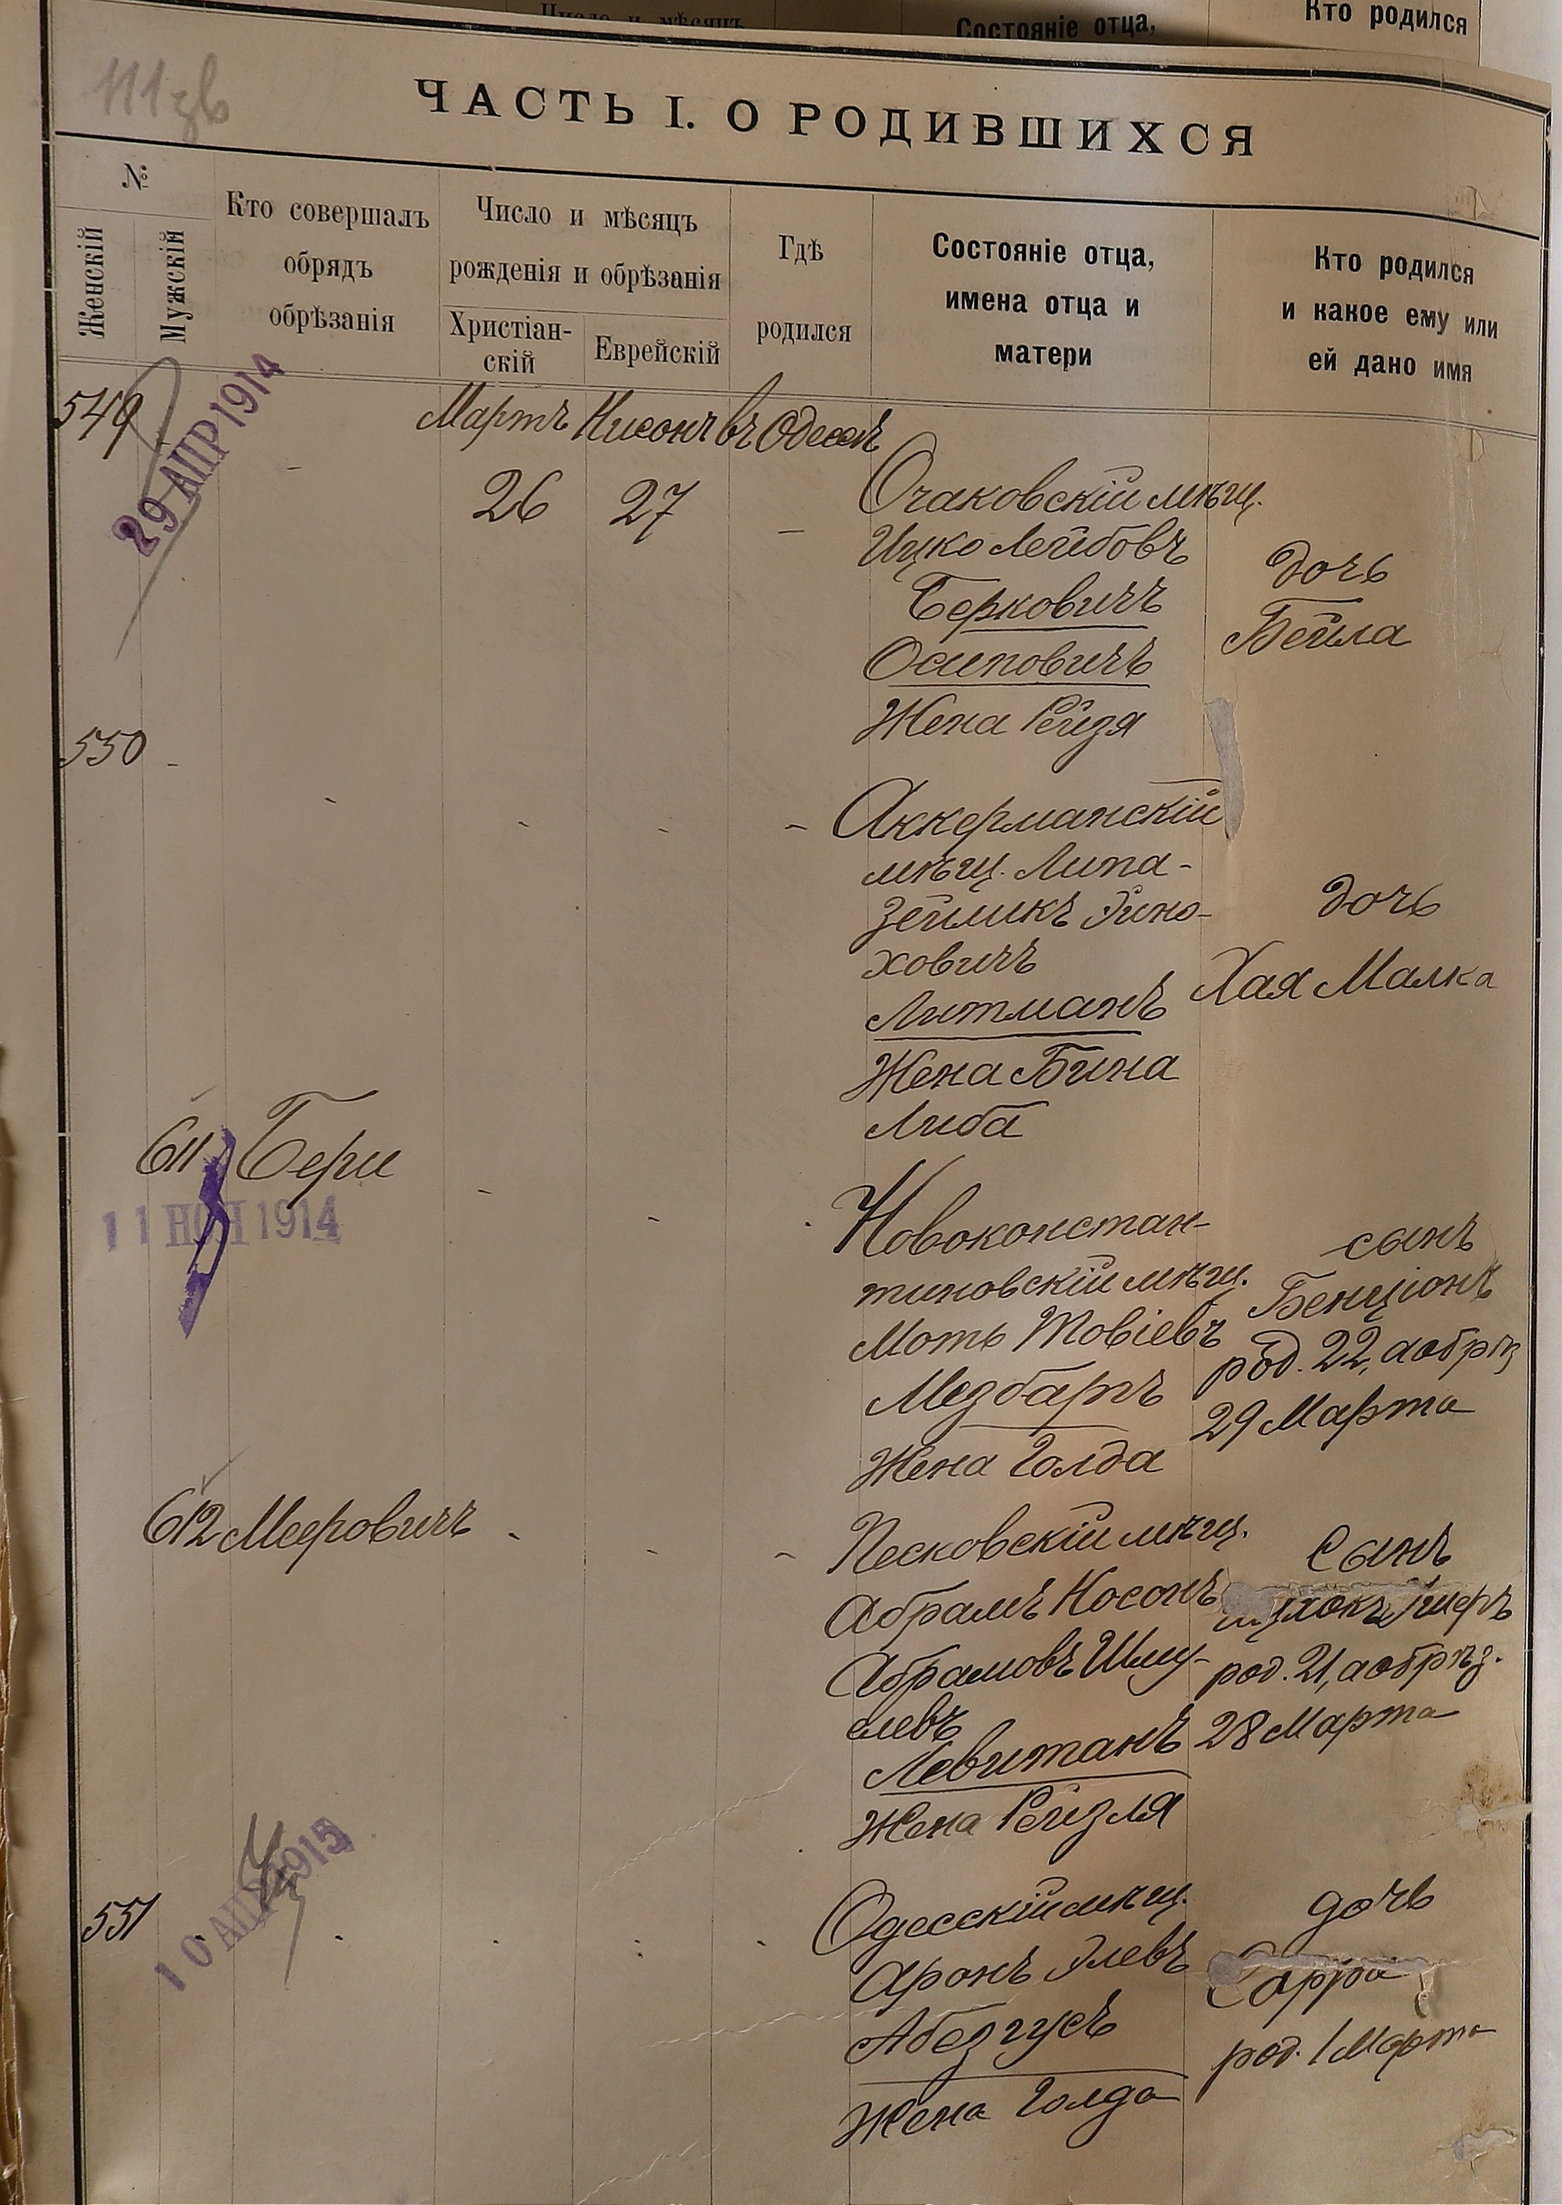 Число и мѣсяцъ
Состояніе отца,
Кто родился
111 зв
ЧАСТЬ I. О РОДИВШИХСЯ
№
Женскій
Мужскій
Кто совершалъ
обрядъ
обрѣзанія
Число и мѣсяцъ
рожденія и обрѣзанія
Христіан-
скій
Еврейскій
Гдѣ
родился
Состояніе отца,
имена отца и
матери
Кто родился
и какое ему или
ей дано имя
549
29 АПР 1914
Мартъ Нисонъ въ Одессѣ
26 27
Очаковскій мѣщ.
Ицко Лейбовъ
Берковичъ
Осиповичъ
Жена Рейзя
дочь
Бейла
550
Аккерманскій
мѣщ. Липа-
Зейликъ Эйно-
ховичъ
Литманъ
Жена Бина
Либа
дочь
Хая Малка
611 Бери
11 НОЯ 1914
Новоконстан-
тиновскій мѣщ.
Моть Товіевъ
Мезбартъ
Жена Голда
сынъ
Бенціонъ
род. 22, а обрѣз
29 Марта
612 Мееровичъ
Песковскій мѣщ.
Абрамъ Носонъ
Абрамовъ Шму-
левъ
Левитанъ
Жена Рейзля
Сынъ
Ушеръ
род. 21, а обрѣз.
28 Марта
551
10 АПР 1915
Одесскій мѣщ.
Аронъ Элевъ
Абезгусъ
Жена Голда
дочь
Сарра
род. 1 Марта